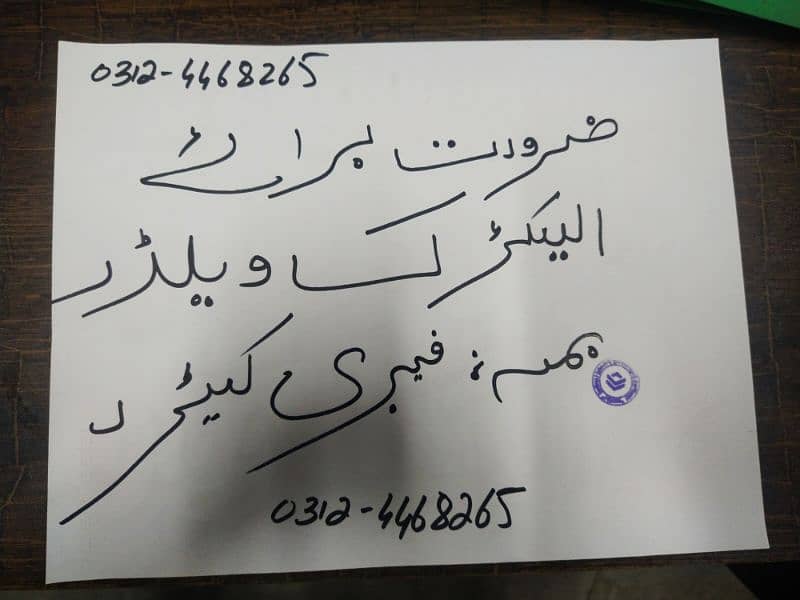 0312-4468265
ضرورت برائے
الیکٹرک ویلڈر
بمعہ فیبریکیٹر
0312-4468265